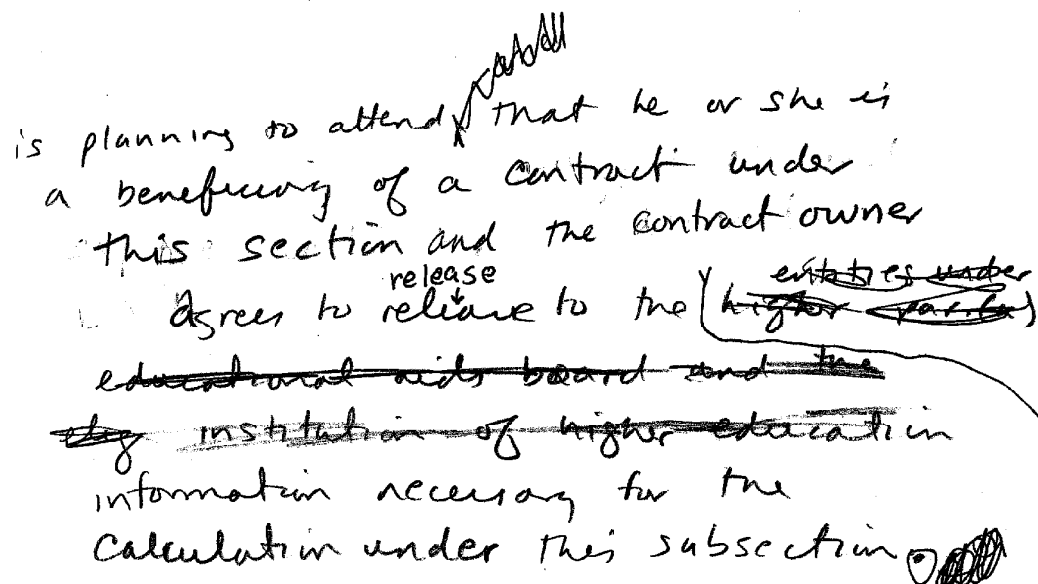 is planning to attend, that he or she is
a beneficiary of a contract under
this section and the contract owner
release
agrees to release to the
entities under
higher
educational aids board and the
institution of higher education
information necessary for the
calculation under this subsection.